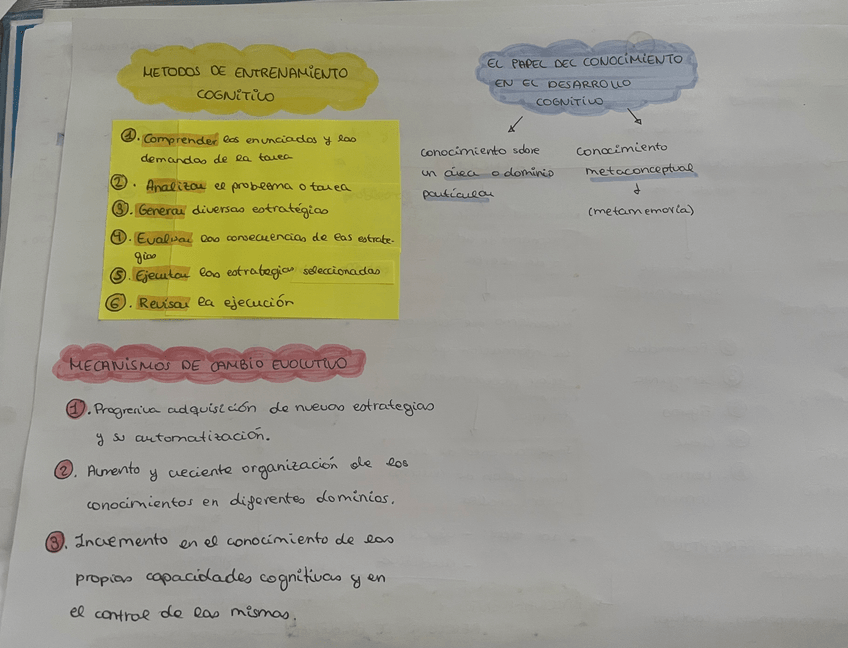 METODOS DE ENTRENAMIENTO
COGNITIVO
1. Comprender los enunciados y las
demandas de la tarea
2. Analizar el problema o tarea
3. Generar diversas estratégias
4. Evaluar las consecuencias de las estrate-
gias
5. Ejecutar las estrategias seleccionadas
6. Revisar la ejecución
EL PAPEL DEL CONOCIMIENTO
EN EL DESARROLLO
COGNITIVO
conocimiento sobre
un área o dominio
particular
Conocimiento
metaconceptual
(metamemoria)
MECANISMOS DE CAMBIO EVOLUTIVO
1. Progresiva adquisición de nuevas estrategias
y su automatización.
2. Aumento y creciente organización de los
conocimientos en diferentes dominios.
3. Incremento en el conocimiento de las
propias capacidades cognitivas y en
el control de las mismas.